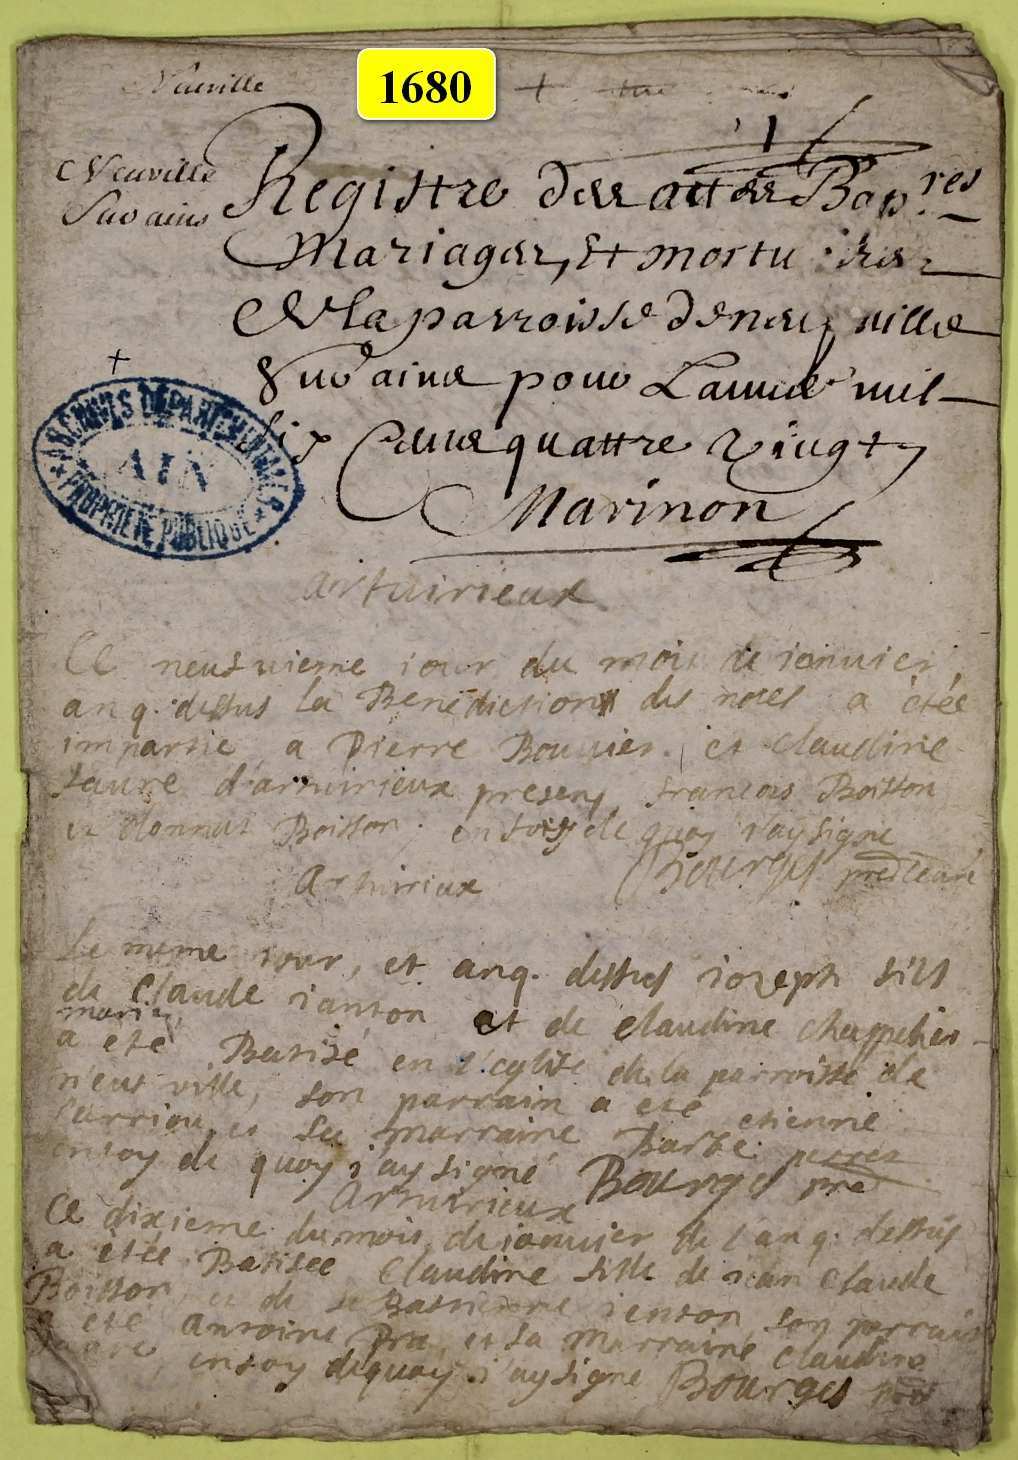 Neuville
1680
Neuville
Sur ains
1
Registre des actes Bap.res
Mariages, Et mortu ires
De la parroisse de neuf ville
Sur aine pour Lannée mil
six Cens quattre vingt
Marinon
ARCHIVES DÉPARTEMENTALES
AIN
PROPRIÉTÉ PUBLIQUE
artuirieux
Ce neufvieme iour du mois de ianvier
an q. dessus la Benediction des noces a étée
impartie a Pierre Bouvier et claudine
faure d'artuirieux presens francois Boisson
et Boisson, en foy de quoy i'ay signé
Bourges pre cure
Artuirieux
Le meme iour, et an q. dessus ioseph fils
de Claude ianton et de claudine chappelier
mariez
a été Batisé en l'eglise de la parroisse de
neuf ville, son parrain a été etienne
et sa marraine Barbe
en foy de quoy i'ay signé Bourges pre
Artuirieux
Ce dixieme du mois de ianvier de l'an q. dessus
a étée Batisee Claudine fille de iean claude
Boisson et de sebastienne ienton, son parrain
a été antoine Pra, et sa marraine claudine
faure, en foy de quoy i'ay signé Bourges pre